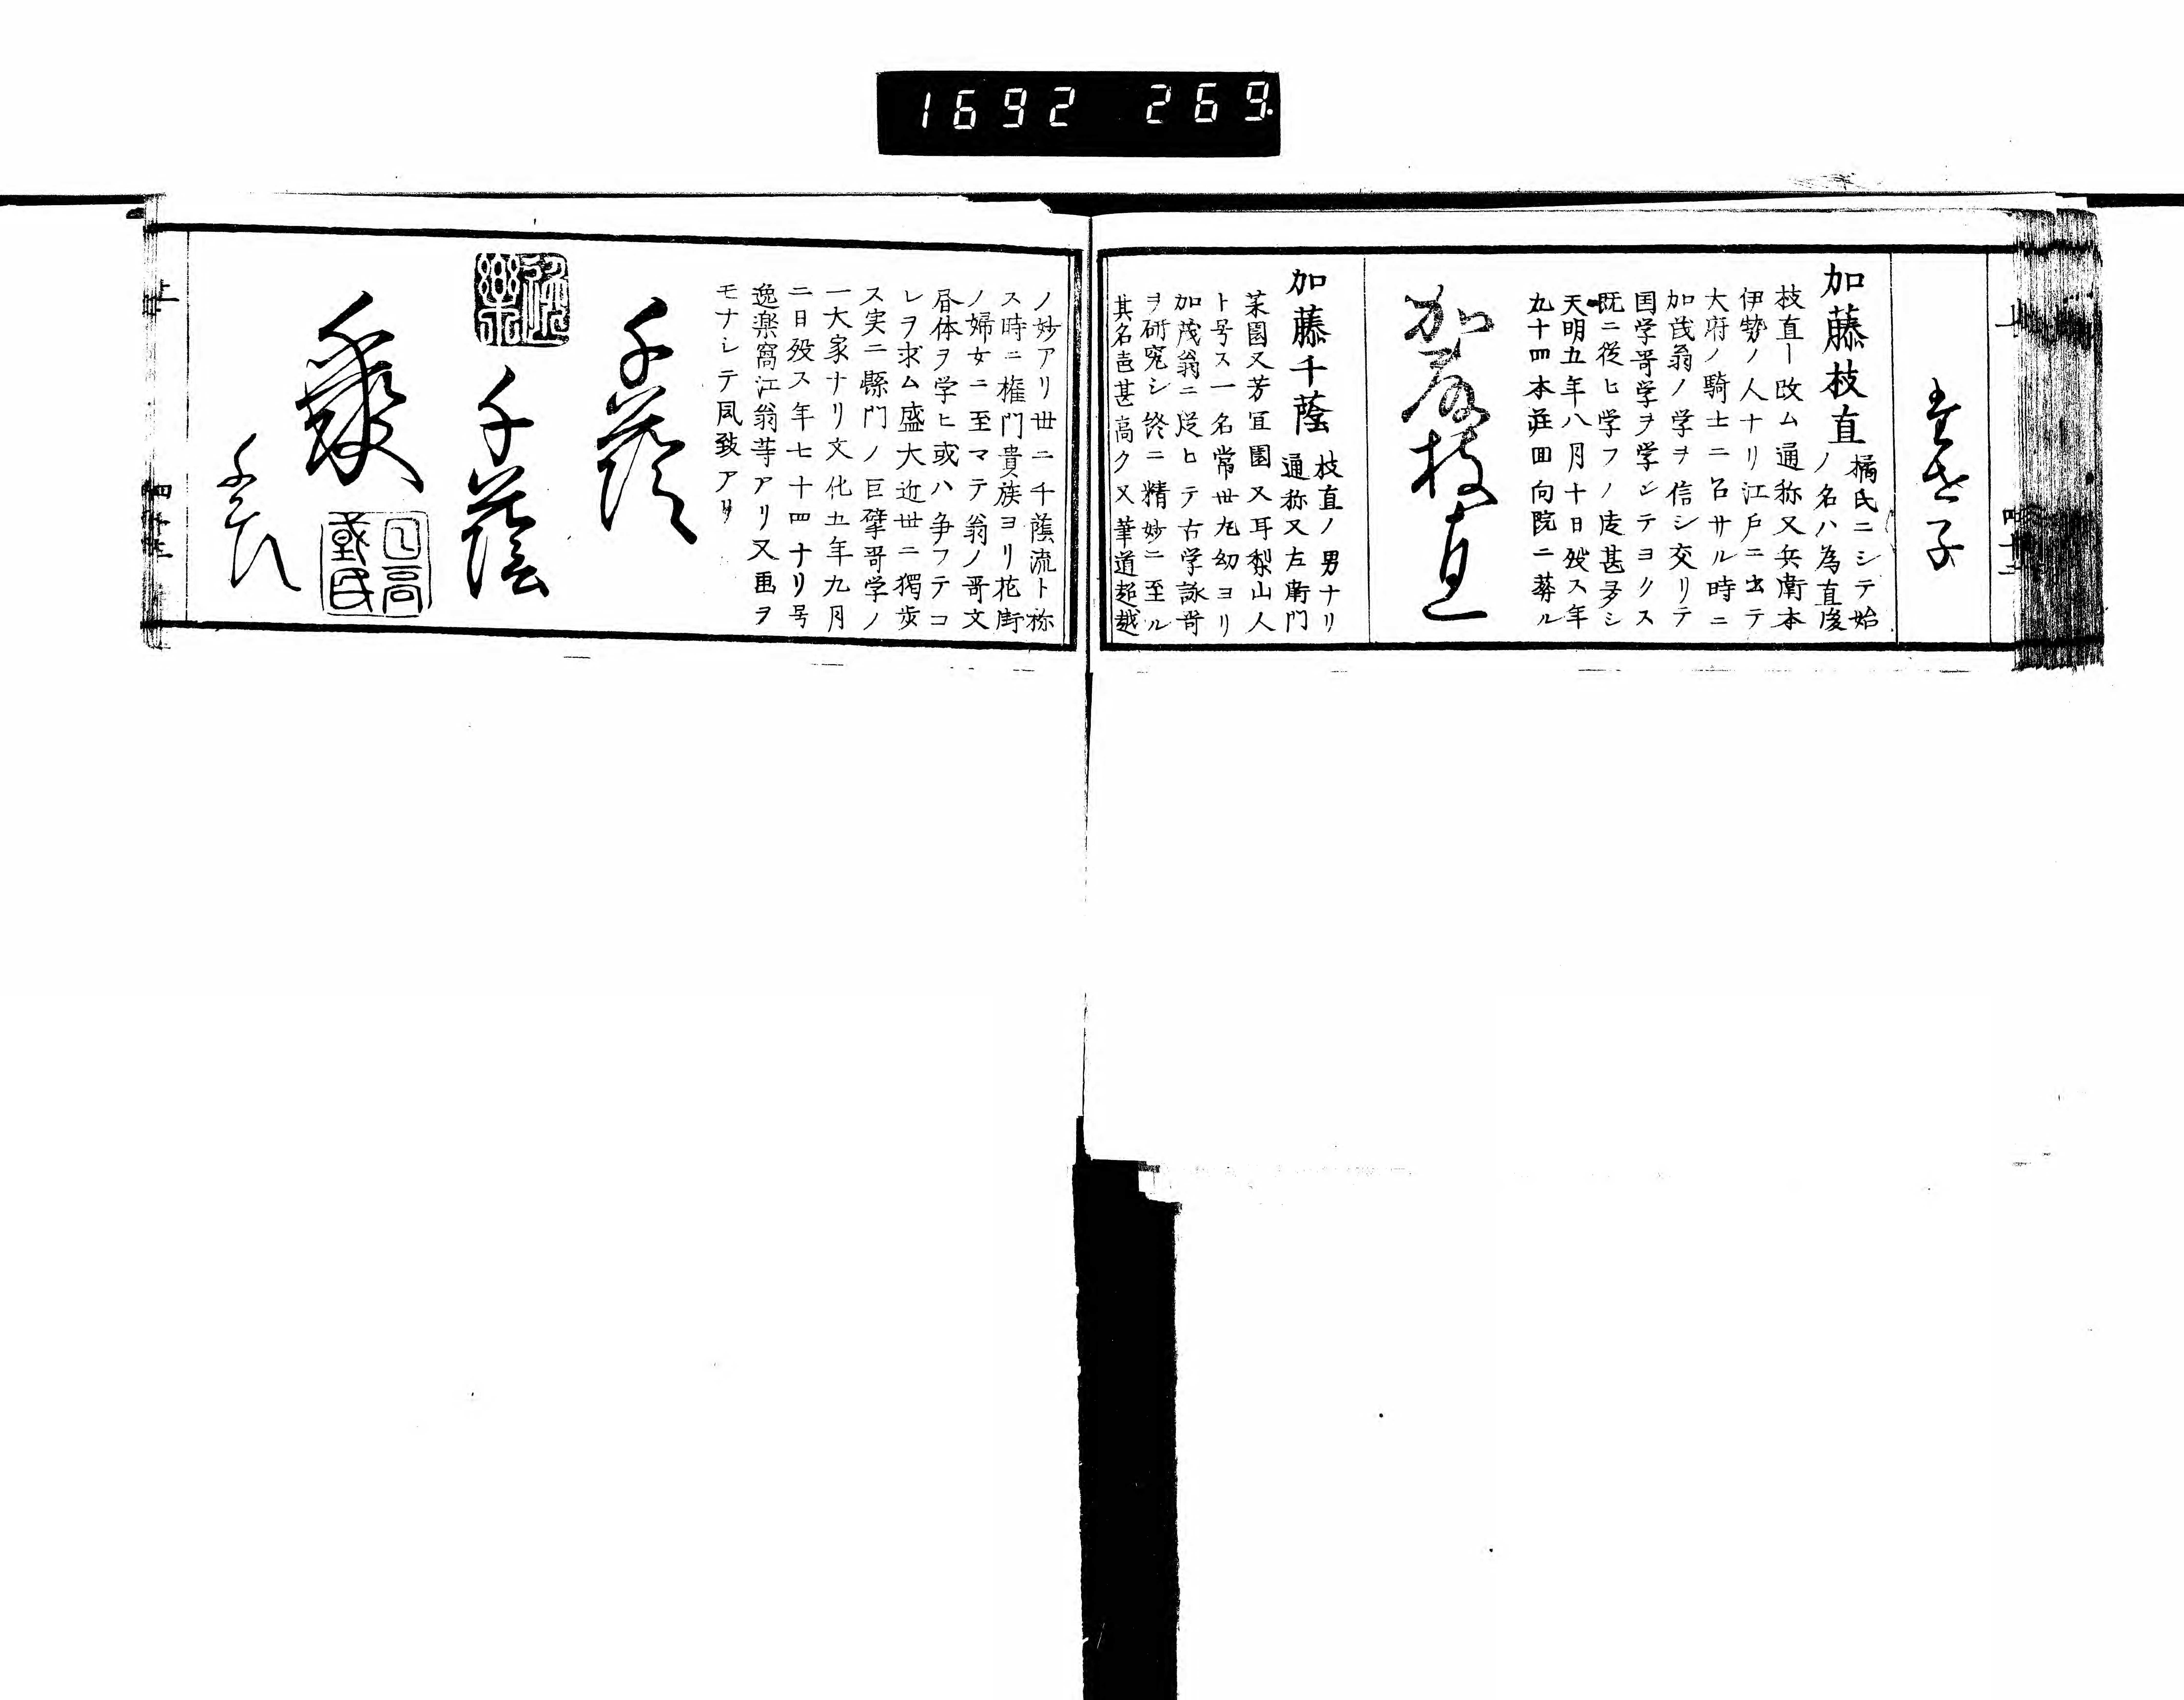 1692 269
上
加藤枝直
橘氏ニシテ始
ノ名ハ為直後
枝直ー改ム通称又兵衛本
伊勢ノ人ナリ江戸ニ出テ
大府ノ騎士ニ召サル時ニ
加茂翁ノ学ヲ信シ交リテ
国学哥学ヲ学ンテヨクス
既ニ従ヒ学フノ徒甚多シ
天明五年八月十日歿ス年
九十四本莊回向院ニ葬ル
加藤枝直
加藤千蔭
枝直ノ男ナリ
通称又左衛門
芳宜園又耳梨山人
ト号ス一名常世丸幼ヨリ
加茂翁ニ従ヒテ古学詠哥
ヲ研究シ終ニ精妙ニ至ル
其名邑甚高ク又筆道超越
ノ妙アリ世ニ千蔭流ト称
ス時ニ権門貴族ヨリ花街
ノ婦女ニ至マテ翁ノ哥文
昼体ヲ学ヒ或ハ争フテコ
レヲ求ム盛大近世ニ独歩
ス実ニ縣門ノ巨擘哥学ノ
一大家ナリ文化五年九月
二日歿ス年七十四ナリ号
逸楽窩江翁等アリ又画ヲ
モナシテ風致アリ
千蔭
千蔭
上